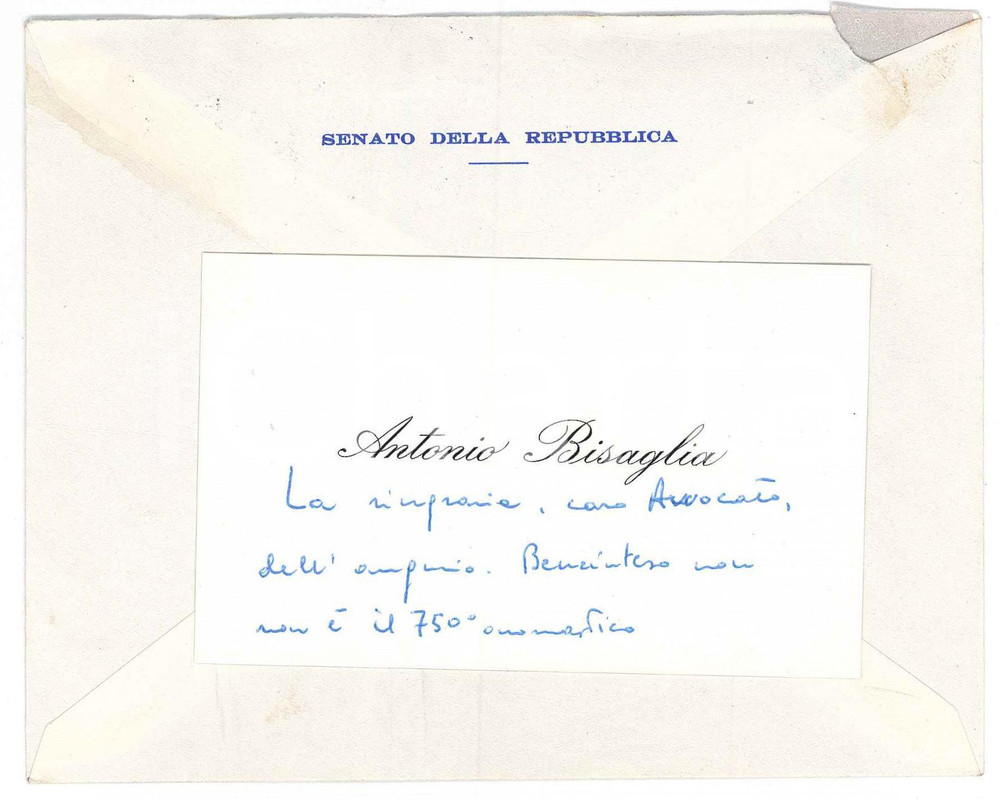 SENATO DELLA REPUBBLICA
Antonio Bisaglia
La ringrazia, caro Avvocato,
dell'augurio. Beninteso non
non è il 750° onomastico